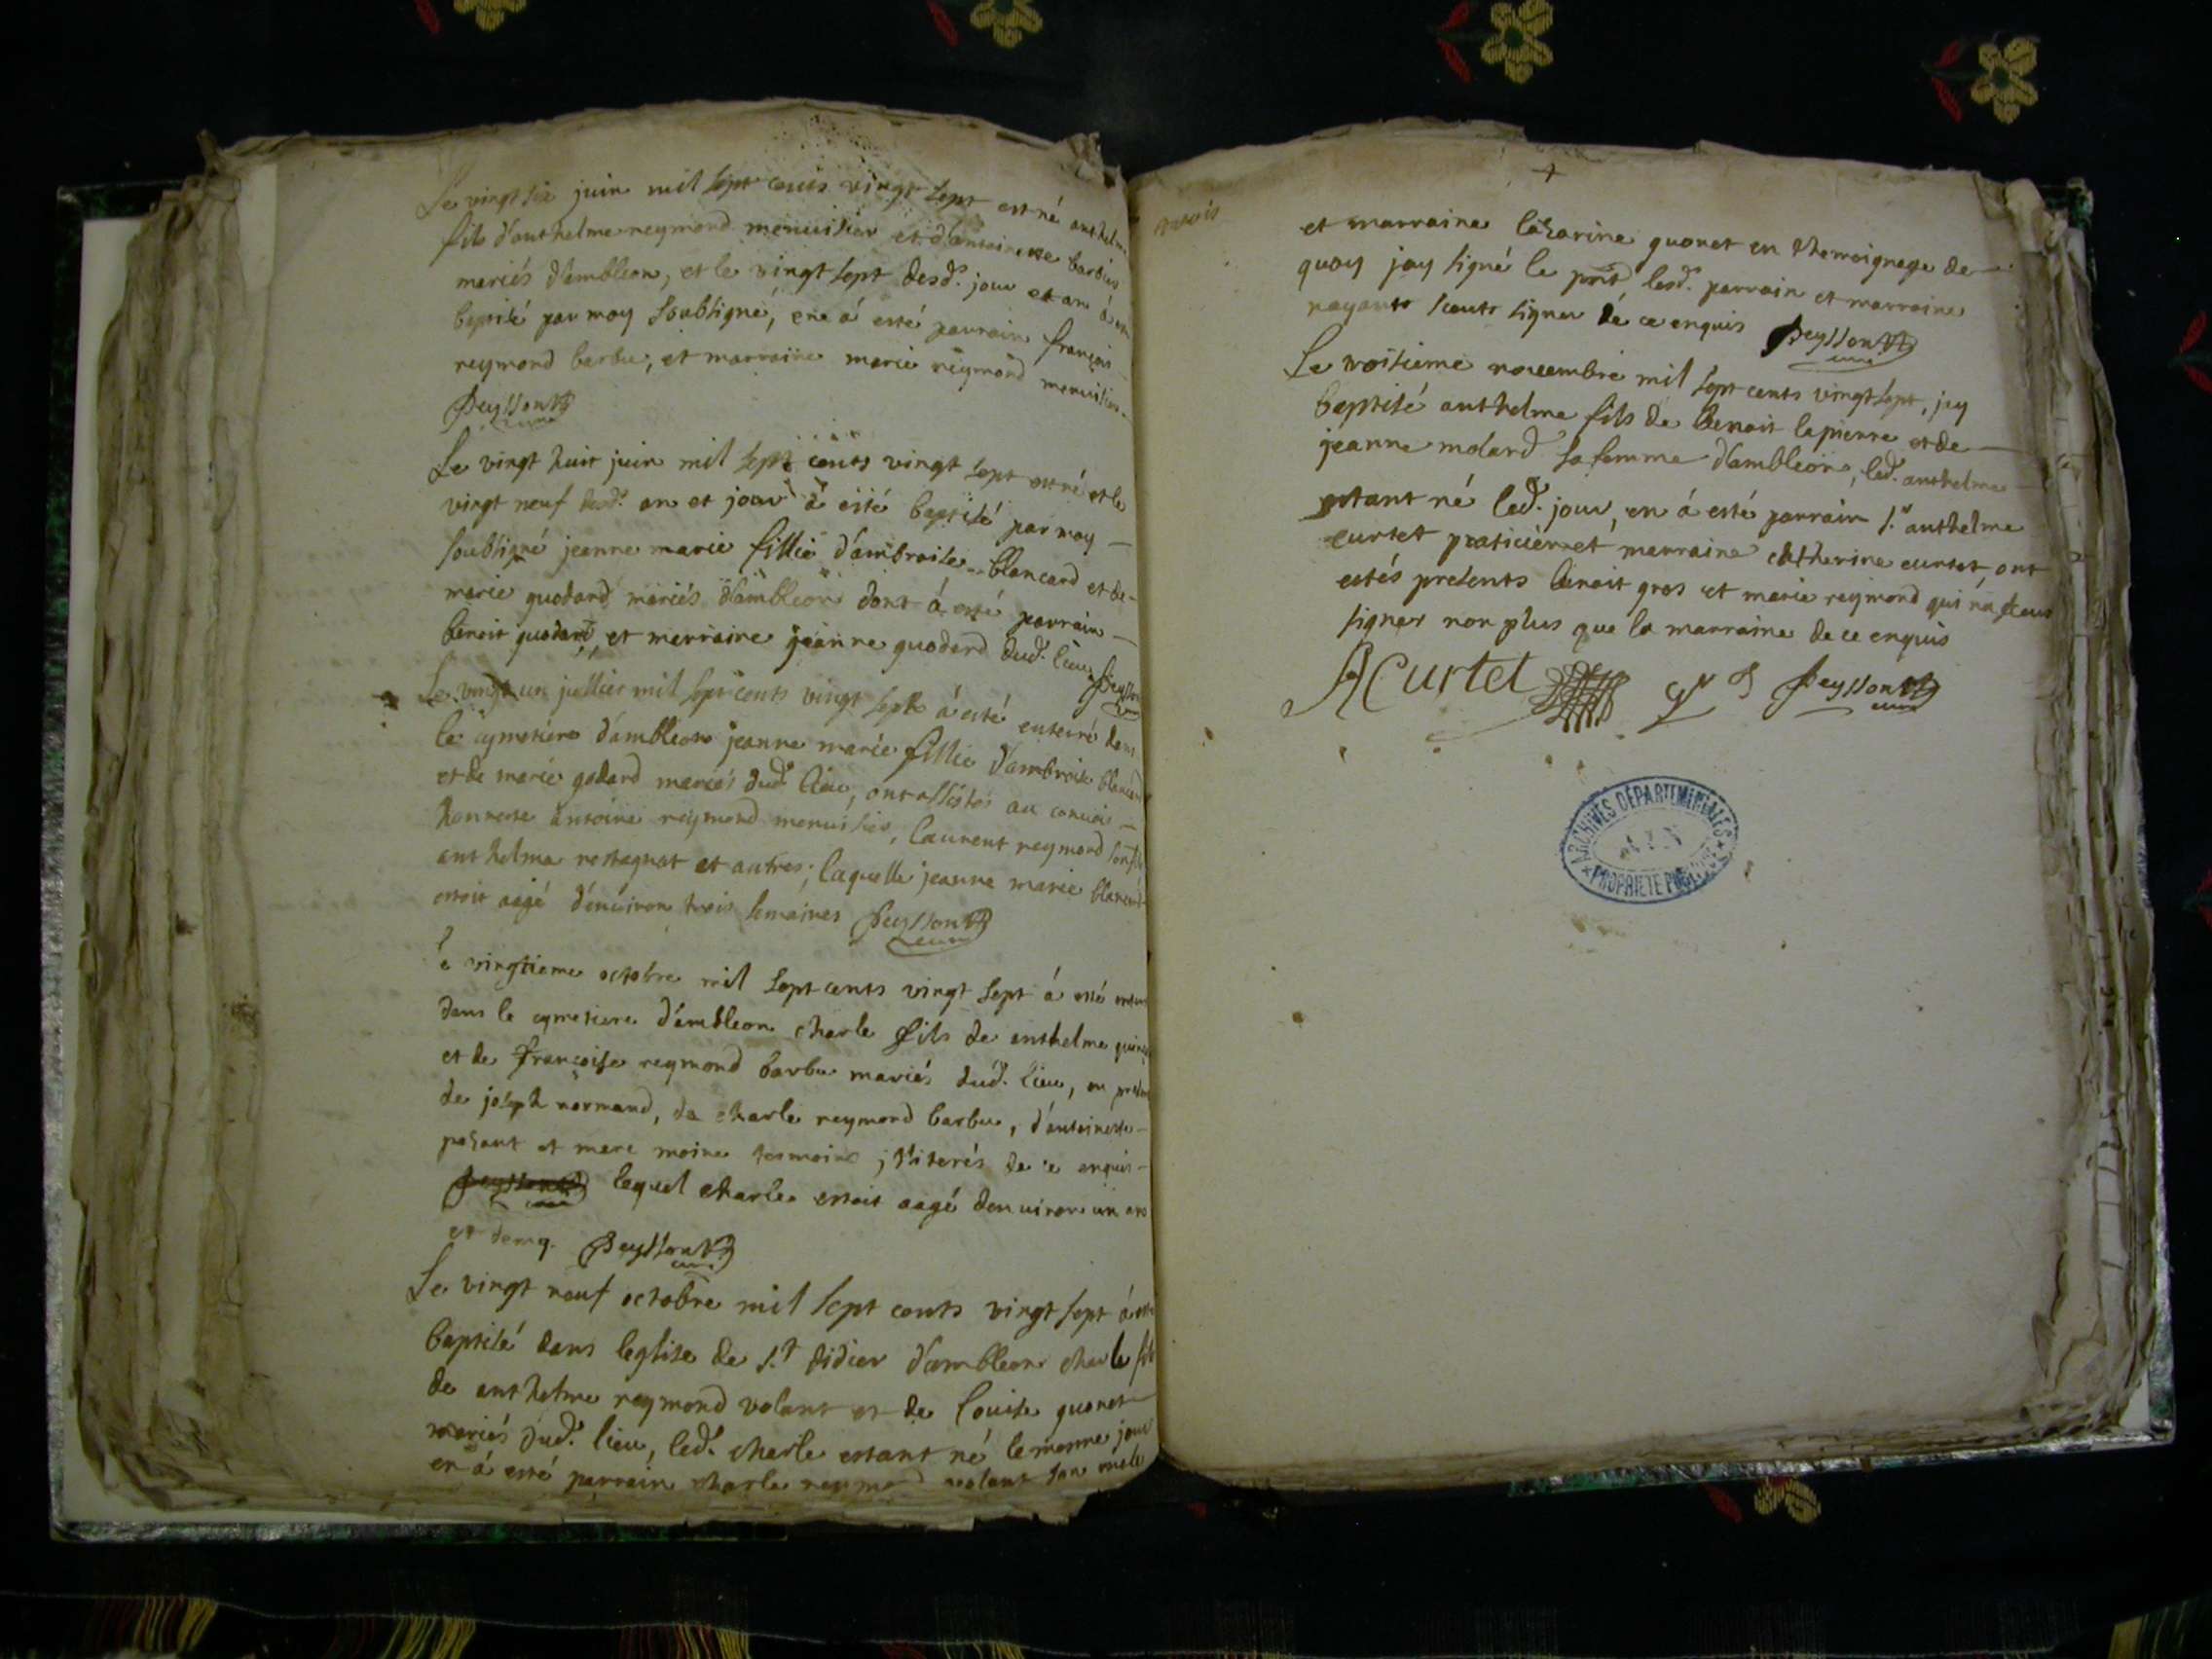 Le vingt six juin mil sept cents vingt sept est né anthelme
fils d'anthelme reymond menuisier et d'antoinette barbier
mariés d'ambleon, et le vingt sept desd. jour et an à esté
baptisé par moy soubsigné, en à esté parrain françois
reymond barbu, et marraine marie reymond menuisier
Peysson
curé
Le vingt huit juin mil sept cents vingt sept est né et le
vingt neuf desd. an et jour à esté baptisé par moy
soubsigné jeanne marie fillie d'ambroise blancard et de
marie guodard mariés d'ambleon dont à esté parrain
benoit guodard et merraine jeanne guodard dud. lieu Peysson
Le vingt un jullier mil sept cents vingt sept à esté enterré dans
le cymetière d'ambleon jeanne marie fillie d'ambroise blancard
et de marie godard mariés dud. lieu, ont assistés au convoi
honneste antoine reymond menuisier, laurent reymond son fils
anthelme restagnat et autres; laquelle jeanne marie blancard
estoit aagé d'environ trois semaines Peysson
curé
Le vingtieme octobre mil sept cents vingt sept à esté
dans le cymetiere d'ambleon charle fils de anthelme
et de françoise reymond barbu mariés dud. lieu, en
de joseph normand, de charle reymond barbu, d'antoinette
et marc moine tesmoins illiterés de ce enquis
Peysson curé lequel charle estoit aagé d'environ un ans
et demy. Peysson
curé
Le vingt neuf octobre mil sept cents vingt sept à esté
baptisé dans leglise de s.t didier d'ambleon charle fils
de anthelme reymond volant et de louise guonet
mariés dud. lieu, led. charle estant né le mesme jour
en à esté parrain charle reymond volant son oncle
et marraine lasarine guonet en themoignage de
quoy jay signé le pnt lesd. parrain et marraine
nayants sceuts signer de ce enquis Peysson
curé
Le troisieme novembre mil sept cents vingt sept, jay
baptisé anthelme fils de benoit lapierre et de
jeanne molard sa femme d'ambleon, led. anthelme
estant né led. jour, en à esté parrain s.r anthelme
curtet praticien et marraine catherine curtet, ont
estés presents benoit gros et marie reymond qui n'a sceus
signer non plus que la marraine de ce enquis
A Curtet Peysson
curé
ARCHIVES DÉPARTEMENTALES
AIN
PROPRIÉTÉ PUBLIQUE